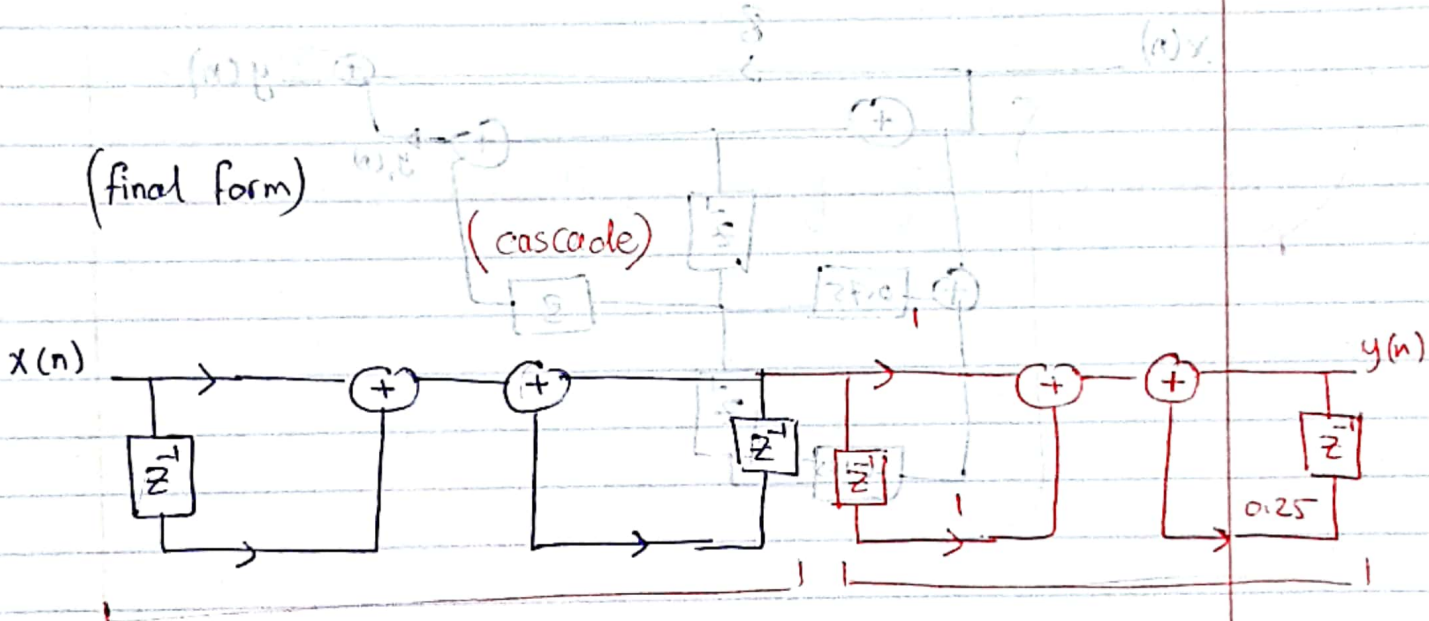 (final form)
(cascade)
x(n) + + 1 + + y(n)
z⁻¹ z⁻¹ z⁻¹ z⁻¹
1 0.25